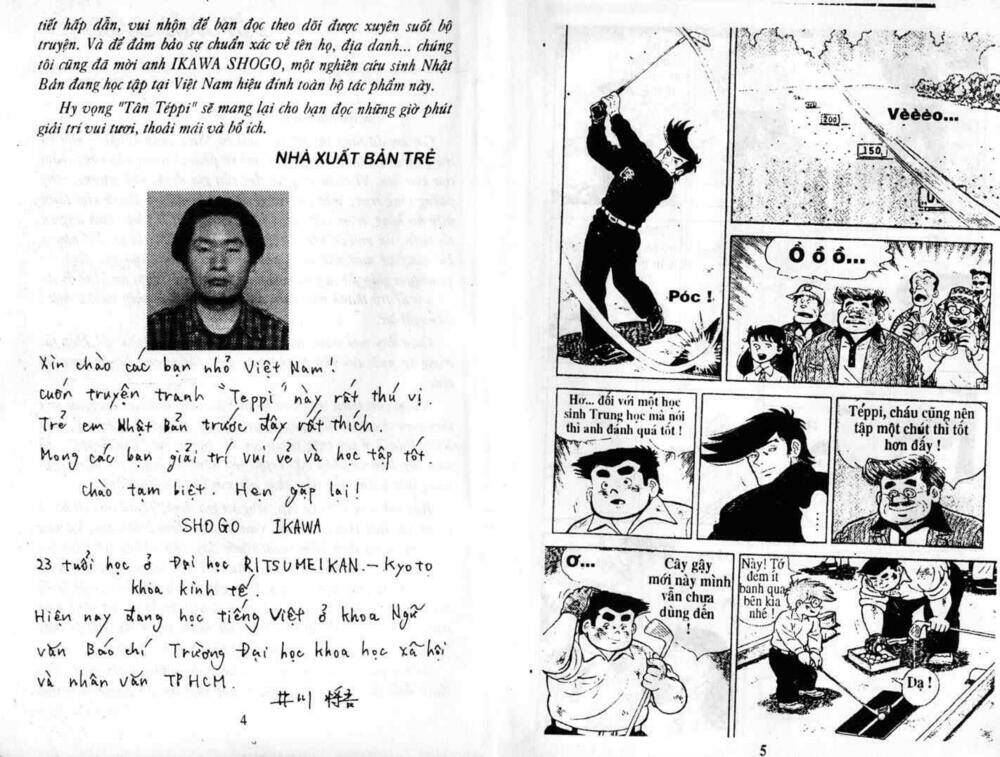 tiết hấp dẫn, vui nhộn để bạn đọc theo dõi được xuyên suốt bộ
truyện. Và để đảm bảo sự chuẩn xác về tên họ, địa danh... chúng
tôi cũng đã mời anh IKAWA SHOGO, một nghiên cứu sinh Nhật
Bản đang học tập tại Việt Nam hiệu đính toàn bộ tác phẩm này.
Hy vọng "Tân Téppi" sẽ mang lại cho bạn đọc những giờ phút
giải trí vui tươi, thoải mái và bổ ích.
NHÀ XUẤT BẢN TRẺ
Xin chào các bạn nhỏ Việt Nam!
cuốn truyện tranh "Teppi" này rất thú vị.
Trẻ em Nhật Bản trước đây rất thích.
Mong các bạn giải trí vui vẻ và học tập tốt.
Chào tạm biệt. Hẹn gặp lại!
SHOGO IKAWA
23 tuổi học ở Đại học RITSUMEIKAN.-Kyoto
khoa kinh tế
Hiện nay đang học tiếng Việt ở khoa Ngữ
văn Báo chí Trường Đại học khoa học xã hội
và nhân văn TPHCM.
井川 将吾
4
Póc !
Vèèèo...
200
150
Ồ ồ ồ...
Hơ... đối với một học
sinh Trung học mà nói
thì anh đánh quá tốt !
...
Téppi, cháu cũng nên
tập một chút thì tốt
hơn đấy !
Ơ...
Cây gậy
mới này mình
vẫn chưa
dùng đến
!
Này! Tớ
đem ít
banh qua
bên kia
nhé !
Dạ !
5